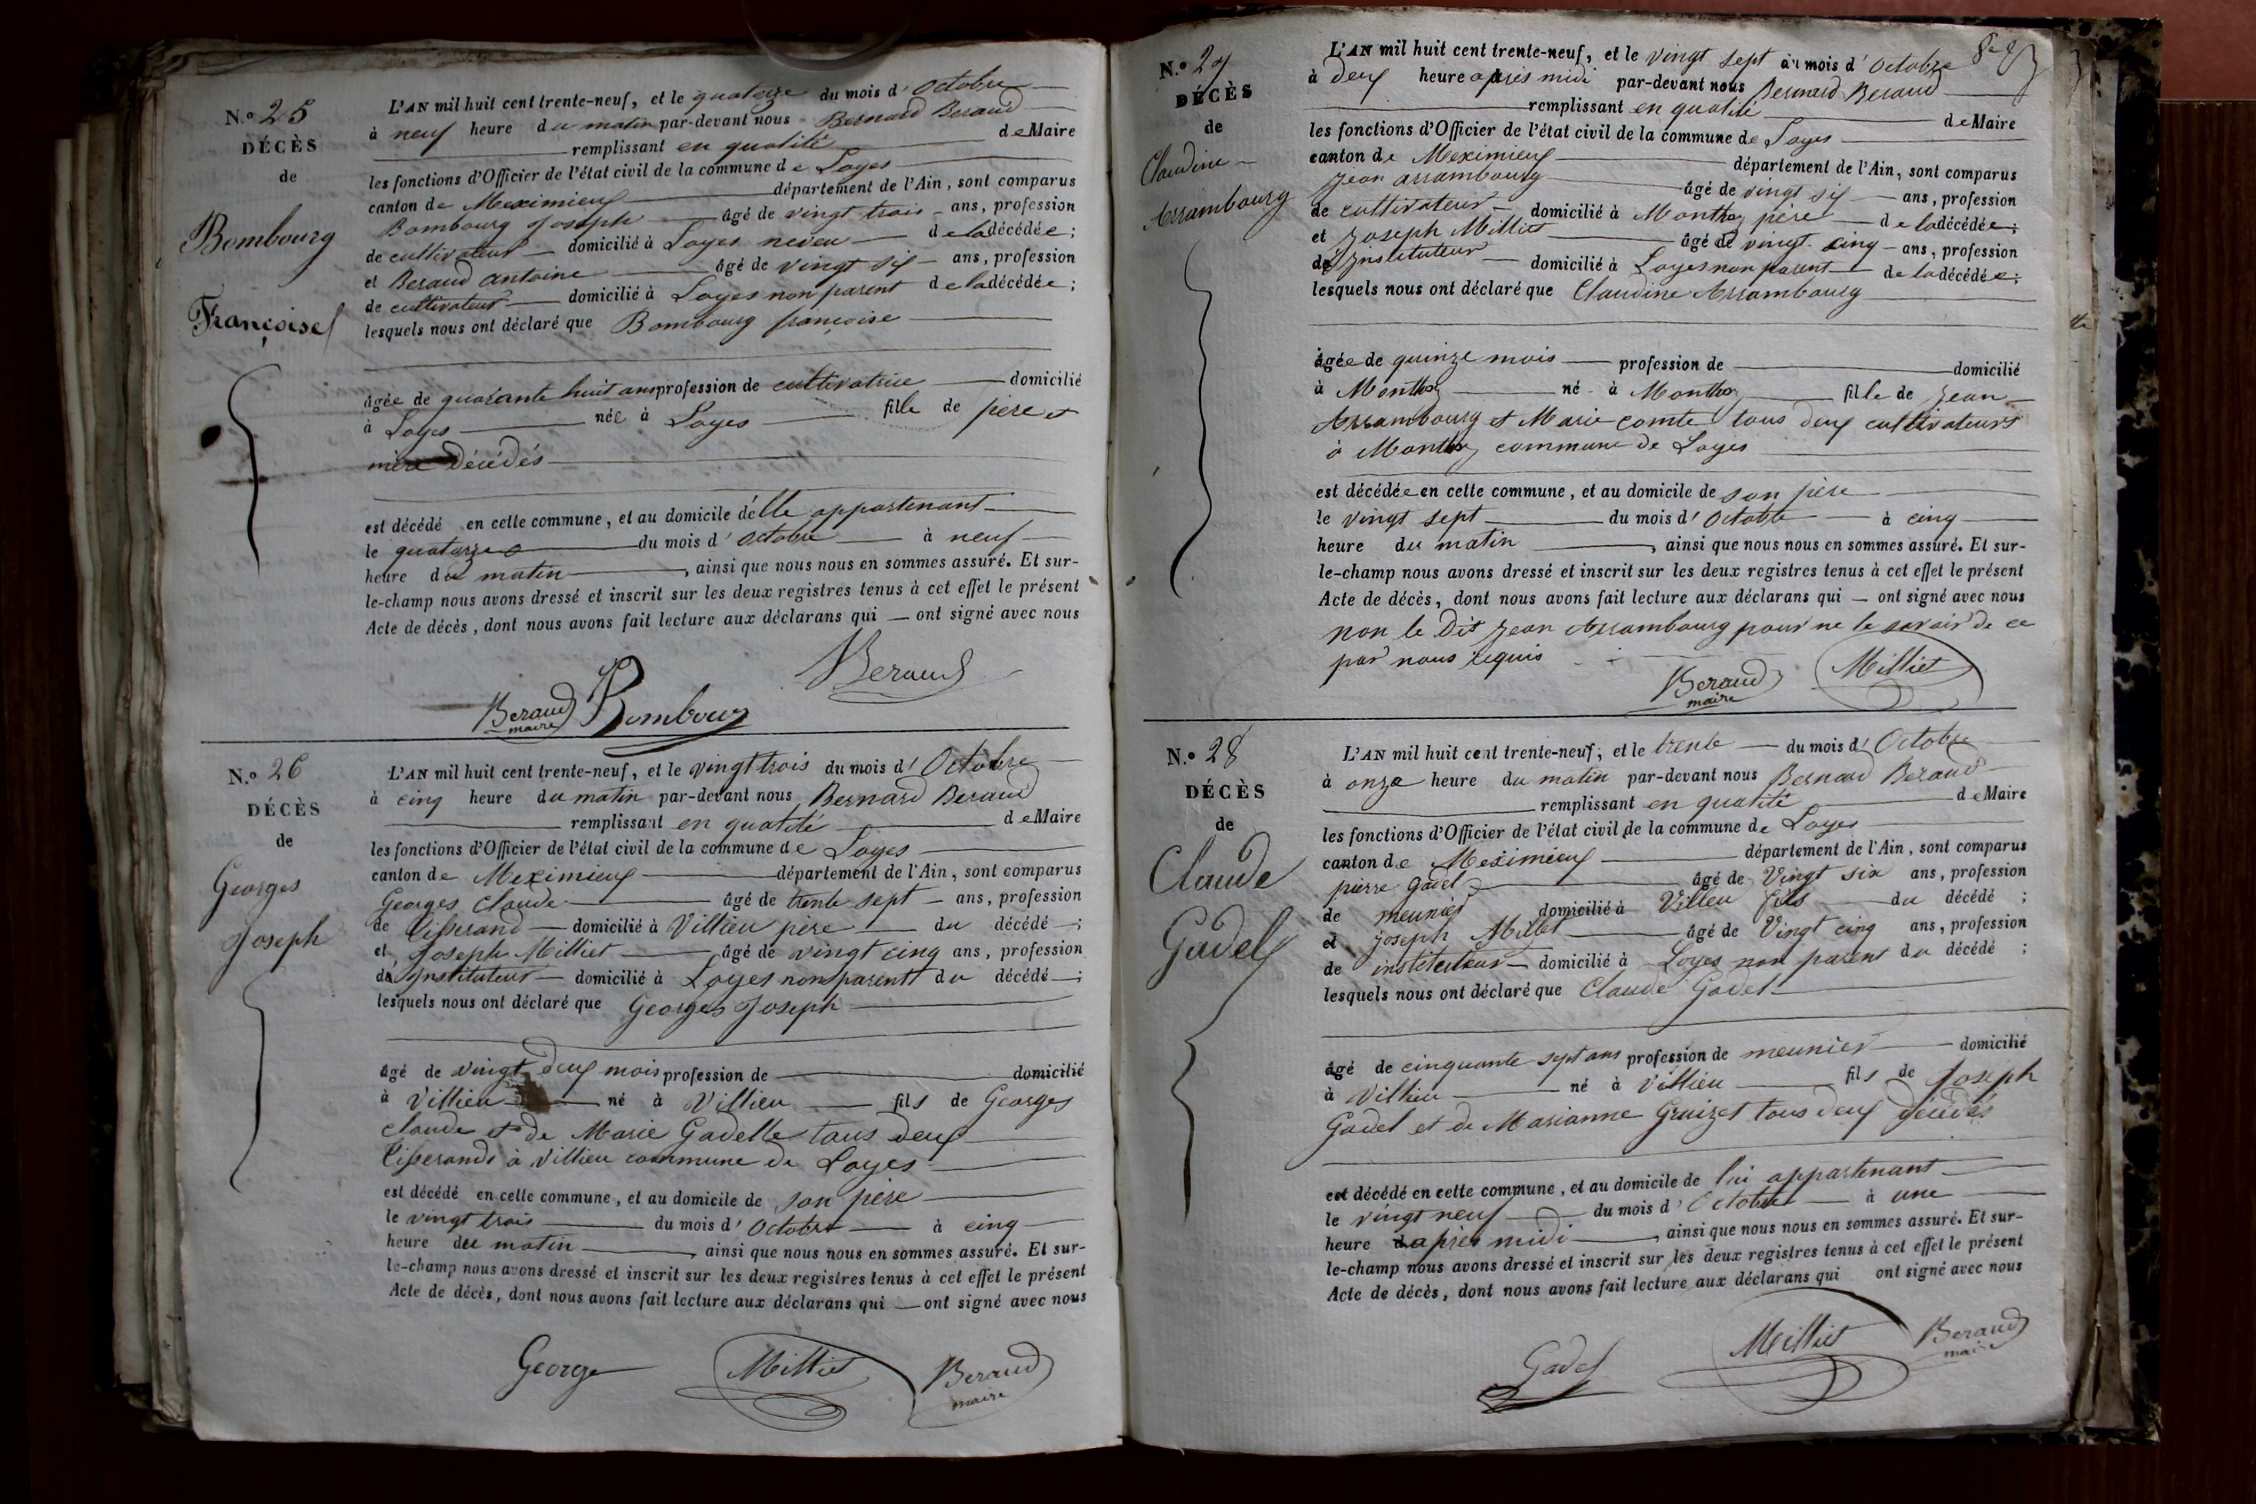 N.º 25
DÉCÈS
de
Bombourg
Françoise
L'AN mil huit cent trente-neuf, et le quatorze du mois d'Octobre
à neuf heure du matin par-devant nous Bernard Beraud
remplissant en qualité de Maire
les fonctions d'Officier de l'état civil de la commune de Loyes
canton de Meximieux département de l'Ain, sont comparus
Bombourg Joseph âgé de vingt trois ans, profession
de cultivateur domicilié à Loyes neveu de la décédée;
et Beraud antoine âgé de vingt six ans, profession
de cultivateur domicilié à Loyes non parent de la décédée;
lesquels nous ont déclaré que Bombourg françoise
âgée de quarante huit ans profession de cultivatrice domicilié
à Loyes née à Loyes fille de père et
mère décédés
est décédé en cette commune, et au domicile d'elle appartenant
le quatorze du mois d'Octobre à neuf
heure du matin, ainsi que nous nous en sommes assuré. Et sur-
le-champ nous avons dressé et inscrit sur les deux registres tenus à cet effet le présent
Acte de décès, dont nous avons fait lecture aux déclarans qui — ont signé avec nous
Beraud
Beraud Bombourg
maire
N.º 26
DÉCÈS
de
Georges
Joseph
L'AN mil huit cent trente-neuf, et le vingt trois du mois d'Octobre
à cinq heure du matin par-devant nous Bernard Beraud
remplissant en qualité de Maire
les fonctions d'Officier de l'état civil de la commune de Loyes
canton de Meximieux département de l'Ain, sont comparus
Georges Claude âgé de trente sept ans, profession
de tisserand domicilié à Villieu père du décédé;
et Joseph Milliet âgé de vingt cinq ans, profession
d'Instituteur domicilié à Loyes non parent du décédé;
lesquels nous ont déclaré que Georges Joseph
âgé de vingt deux mois profession de domicilié
à Villieu né à Villieu fils de Georges
Claude et de Marie Gadelle tous deux
tisserands à Villieu commune de Loyes
est décédé en cette commune, et au domicile de son père
le vingt trois du mois d'Octobre à cinq
heure du matin, ainsi que nous nous en sommes assuré. Et sur-
le-champ nous avons dressé et inscrit sur les deux registres tenus à cet effet le présent
Acte de décès, dont nous avons fait lecture aux déclarans qui — ont signé avec nous
George Milliet Beraud
maire
N.º 27
DÉCÈS
de
Claudine
Arrambourg
L'AN mil huit cent trente-neuf, et le vingt sept du mois d'Octobre
à deux heure après midi par-devant nous Bernard Beraud
remplissant en qualité de Maire
les fonctions d'Officier de l'état civil de la commune de Loyes
canton de Meximieux département de l'Ain, sont comparus
Jean arrambourg âgé de vingt six ans, profession
de cultivateur domicilié à Monthoz père de la décédée;
et Joseph Milliet âgé de vingt cinq ans, profession
d'Instituteur domicilié à Loyes non parent de la décédée;
lesquels nous ont déclaré que Claudine Arrambourg
âgée de quinze mois profession de domicilié
à Monthoz né à Monthoz fille de Jean
Arrambourg et Marie comte tous deux cultivateurs
à Monthoz commune de Loyes
est décédée en cette commune, et au domicile de son père
le vingt sept du mois d'Octobre à cinq
heure du matin, ainsi que nous nous en sommes assuré. Et sur-
le-champ nous avons dressé et inscrit sur les deux registres tenus à cet effet le présent
Acte de décès, dont nous avons fait lecture aux déclarans qui — ont signé avec nous
non le dit Jean Arrambourg pour ne le savoir de ce
par nous requis
Beraud Milliet
maire
N.º 28
DÉCÈS
de
Claude
Gadel
L'AN mil huit cent trente-neuf, et le trente du mois d'Octobre
à onze heure du matin par-devant nous Bernard Beraud
remplissant en qualité de Maire
les fonctions d'Officier de l'état civil de la commune de Loyes
canton de Meximieux département de l'Ain, sont comparus
pierre Gadel âgé de Vingt six ans, profession
de meunier domicilié à Villieu fils du décédé;
et joseph Milliet âgé de Vingt cinq ans, profession
de instituteur domicilié à Loyes non parent du décédé;
lesquels nous ont déclaré que Claude Gadel
âgé de cinquante sept ans profession de meunier domicilié
à Villieu né à Villieu fils de Joseph
Gadel et de Marianne Gruizet tous deux décédés
est décédé en cette commune, et au domicile de lui appartenant
le vingt neuf du mois d'Octobre à une
heure d'après midi, ainsi que nous nous en sommes assuré. Et sur-
le-champ nous avons dressé et inscrit sur les deux registres tenus à cet effet le présent
Acte de décès, dont nous avons fait lecture aux déclarans qui ont signé avec nous
Gadel Milliet Beraud
maire